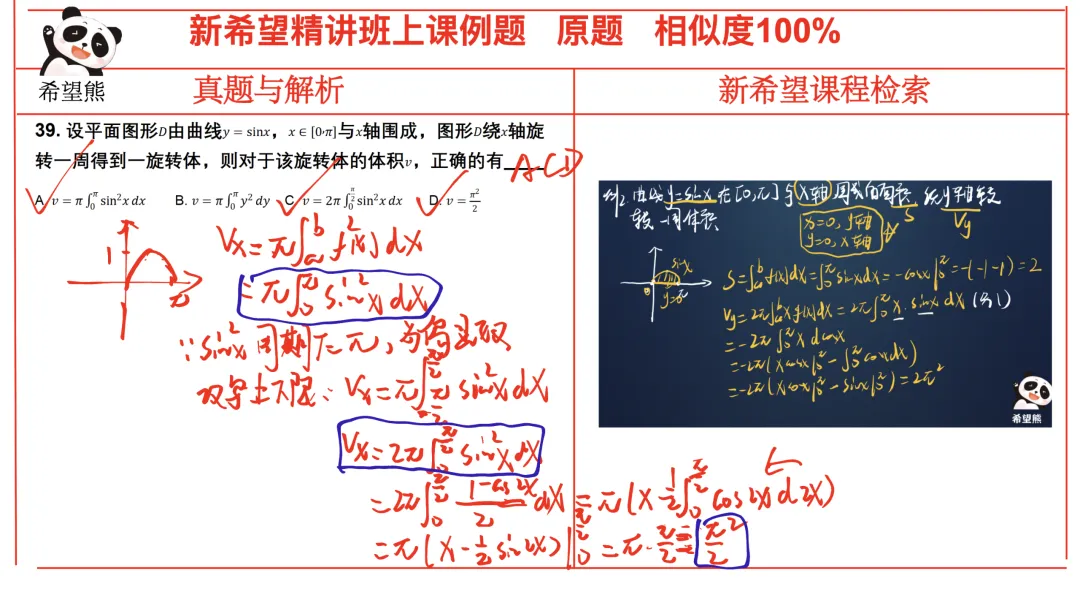 新希望精讲班上课例题 原题 相似度100%
希望熊
真题与解析
新希望课程检索
39. 设平面图形D由曲线y = sinx，x ∈ [0·π]与x轴围成，图形D绕x轴旋
转一周得到一旋转体，则对于该旋转体的体积v，正确的有____ ACD
A. v = π∫₀^π sin²x dx B. v = π∫₀^π y² dy C. v = 2π∫₀^(π/2) sin²x dx D. v = π²/2
1
π
Vx = π∫ₐᵇ f²(x) dx
= π∫₀^π sin²x dx
∵ sin²x 周期T=π, 为偶函数
改写上下限: Vx = π∫_(-π/2)^(π/2) sin²x dx
Vx = 2π∫₀^(π/2) sin²x dx
= 2π∫₀^(π/2) (1-cos2x)/2 dx = π(x - 1/2∫₀^(π/2) cos2x d2x)
= π(x - 1/2 sin2x)|₀^(π/2) = π·π/2 = π²/2
例2. 曲线y=sinx在[0,π]与x轴围成的面积 绕y轴旋转
一周体积
S
Vy
x=0, y轴
y=0, x轴
sinx
y=0
S = ∫ₐᵇ f(x)dx = ∫₀^π sinxdx = -cosx|₀^π = -(-1-1) = 2
Vy = 2π∫ₐᵇ xf(x)dx = 2π∫₀^π x·sinx dx
= -2π∫₀^π x dcosx
= -2π(xcosx|₀^π - ∫₀^π cosxdx)
= -2π(xcosx|₀^π - sinx|₀^π) = 2π²
希望熊